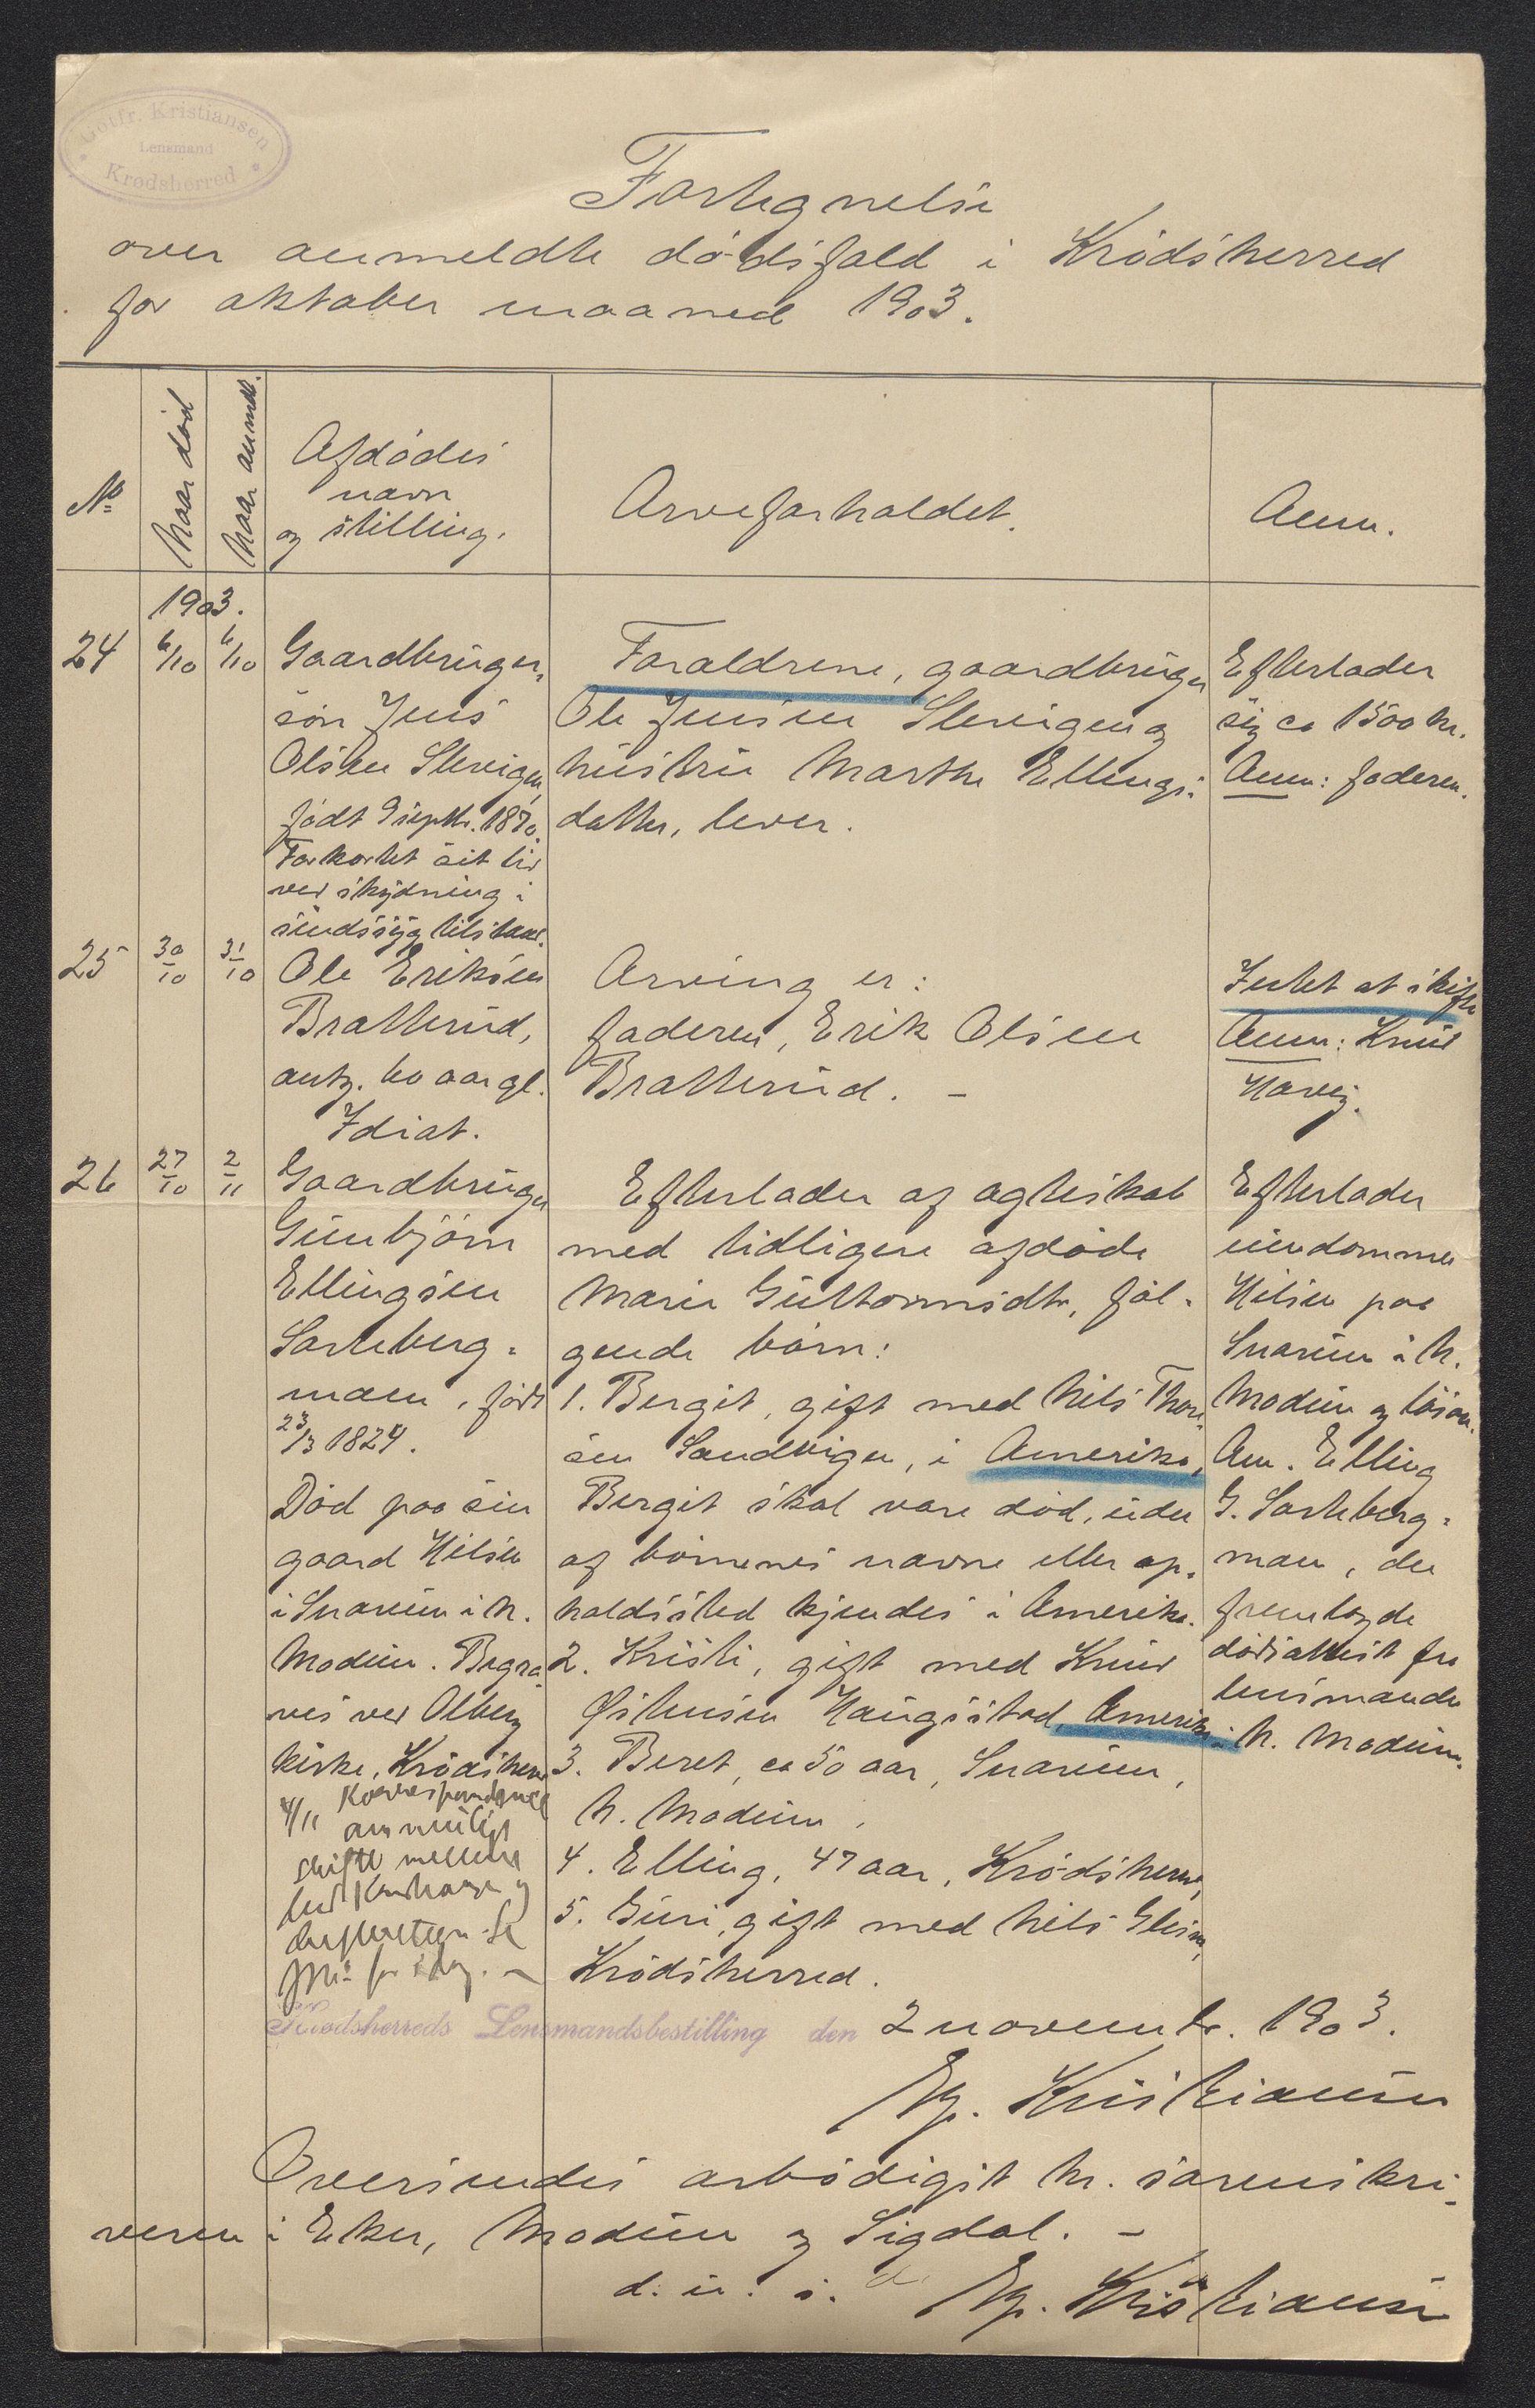 Gotfr. Kristiansen
Lensmand
Krødsherred
Fortegnelse
over anmeldte dødsfald i Krødsherred
for oktober maaned 1903.
No
Naar død
Naar anmel.
Afdødes
navn
og stilling.
Arveforholdet.
Anm.
1903.
24
6/10
6/10
Gaardbruger,
søn Jens
Olsen Slevigen,
født 9 septbr. 1870.
Forkortet sit liv
ved skydning i
sindssyg tilstand.
Forældrene, gaardbruger
Ole Jensen Slevigen og
hustru Marthe Ellings-
datter, lever.
Efterlader
sig ca 1500 kr.
Anm: faderen.
25
30/10
31/10
Ole Eriksen
Bratterud,
antg. 60 aar gl.
Idiot.
Arving er:
faderen, Erik Olsen
Bratterud. -
Intet at skifte
Anm: Knud
26
27/10
2/11
Gaardbruger
Gunbjørn
Ellingsen
Sarteberg-
moen, født
23/3 1824.
Død paa sin
gaard Hilsen
i Snarum i N.
Modum. Begra-
ves ved Olberg
kirke, Krødsherred
4/11 Korrespondance
om muligt
skifte mellem
Efterlader af ægteskab
med tidligere afdøde
Marie Guttormsdtr, føl-
gende børn:
1. Bergit, gift med Nils Thor-
sen Sandvigen, i Amerika,
Bergit skal være død, uden
af børnenes navne eller op-
holdssted kjendes i Amerika.
2. Kristi, gift med Knud
Østensen Haugsstad, Amerika
3. Beret, ca 50 aar, Snarum,
N. Modum.
4. Elling, 47 aar, Krødsherred,
5. Guri, gift med Nils Glesne,
Krødsherred.
Efterlader
eiendommen
Hilsen paa
Snarum i N.
Modum og løsøre.
Anm. Elling
G. Sarteberg-
moen, der
fremlagde
dødsattest fra
lensmanden
i N. Modum.
Krødsherreds Lensmandsbestilling den 2 novembr. 1903.
Kristiansen
Oversendes ærbødigst hr. sorenskri-
veren i Eker, Modum og Sigdal. -
d. u. s.
Kristiansen